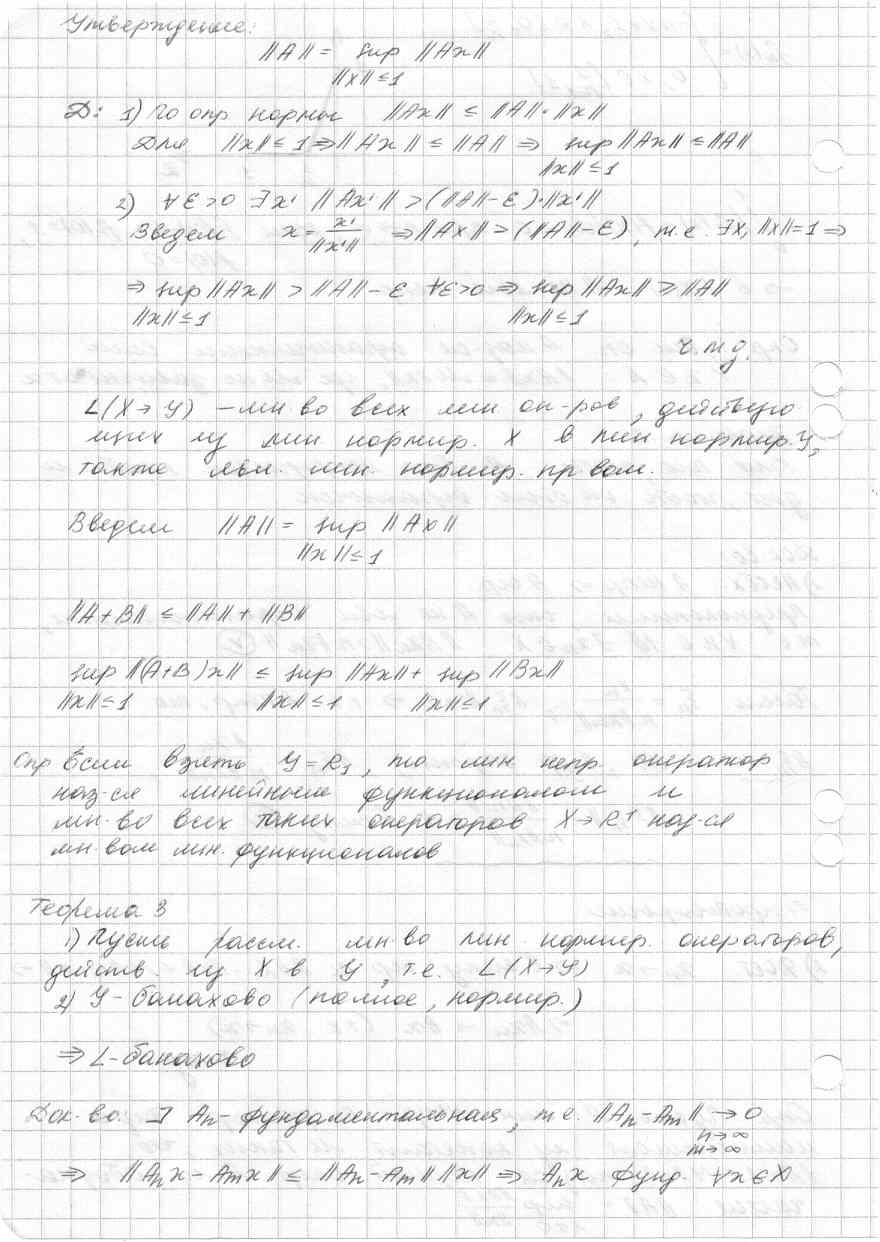 Утверждение:
||A|| = sup ||Ax||
||x|| ≤ 1
Д: 1) По опр нормы ||Ax|| ≤ ||A||·||x||
Для ||x|| ≤ 1 ⇒ ||Ax|| ≤ ||A|| ⇒ sup ||Ax|| ≤ ||A||
||x|| ≤ 1
2) ∀ε>0 ∃x' ||Ax'|| > (||A||-ε)·||x'||
Введем x = x'/||x'|| ⇒ ||Ax|| > (||A||-ε), т.е. ∃x, ||x||=1 ⇒
⇒ sup ||Ax|| > ||A|| - ε ∀ε>0 ⇒ sup ||Ax|| ≥ ||A||
||x|| ≤ 1 ||x|| ≤ 1
ч.т.д.
L(X→Y) – мн-во всех лин. оп-ров, действую-
щих из лин нормир. X в лин нормир. Y,
также явл. лин. нормир. пр-вом.
Введем ||A|| = sup ||Ax||
||x|| ≤ 1
||A+B|| ≤ ||A|| + ||B||
sup ||(A+B)x|| ≤ sup ||Ax|| + sup ||Bx||
||x|| ≤ 1 ||x|| ≤ 1 ||x|| ≤ 1
Опр Если взять Y = R₁, то лин. непр. оператор
наз-ся линейным функционалом и
мн-во всех таких операторов X→R¹ наз-ся
мн-вом лин. функционалов
Теорема 3
1) Пусть рассм. мн-во лин. нормир. операторов,
действ. из X в Y, т.е. L(X→Y)
2) Y – банахово (полное, нормир.)
⇒ L-банахово
Док-во. ⊐ Aₙ – фундаментальная, т.е. ||Aₙ - Aₘ|| → 0
n→∞
m→∞
⇒ ||Aₙx - Aₘx|| ≤ ||Aₙ - Aₘ|| ||x|| ⇒ Aₙx фунд. ∀x∈X